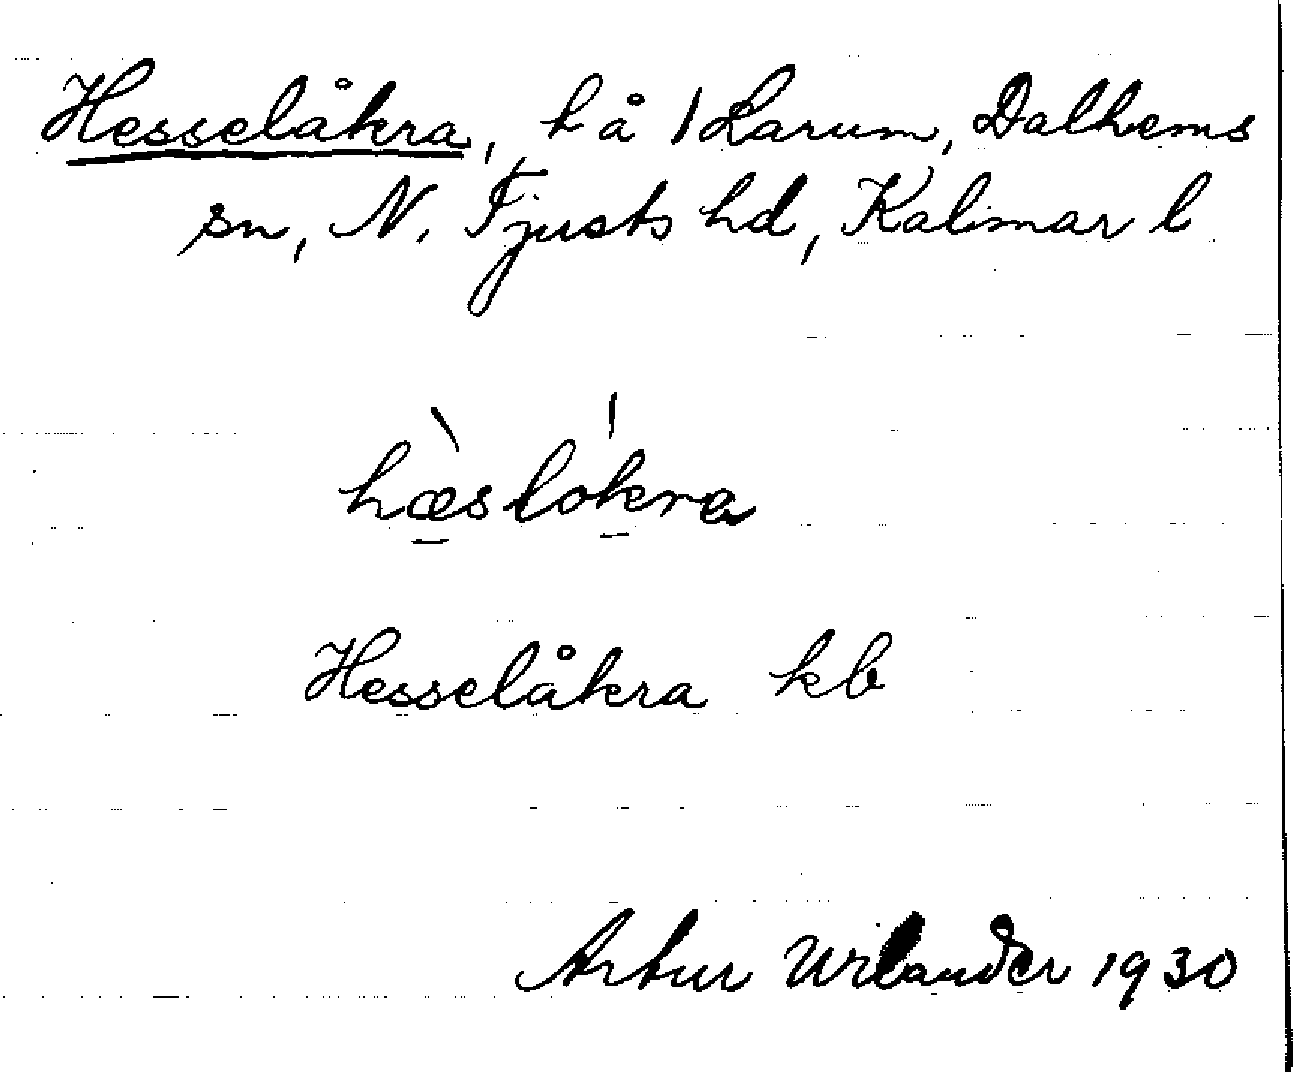 Hesselåkra, på 1 Larum, Dalhems
sn, N. Tjusts hd, Kalmar l
hæ̀slókra
Hesselåkra kb
Artur Wilander 1930